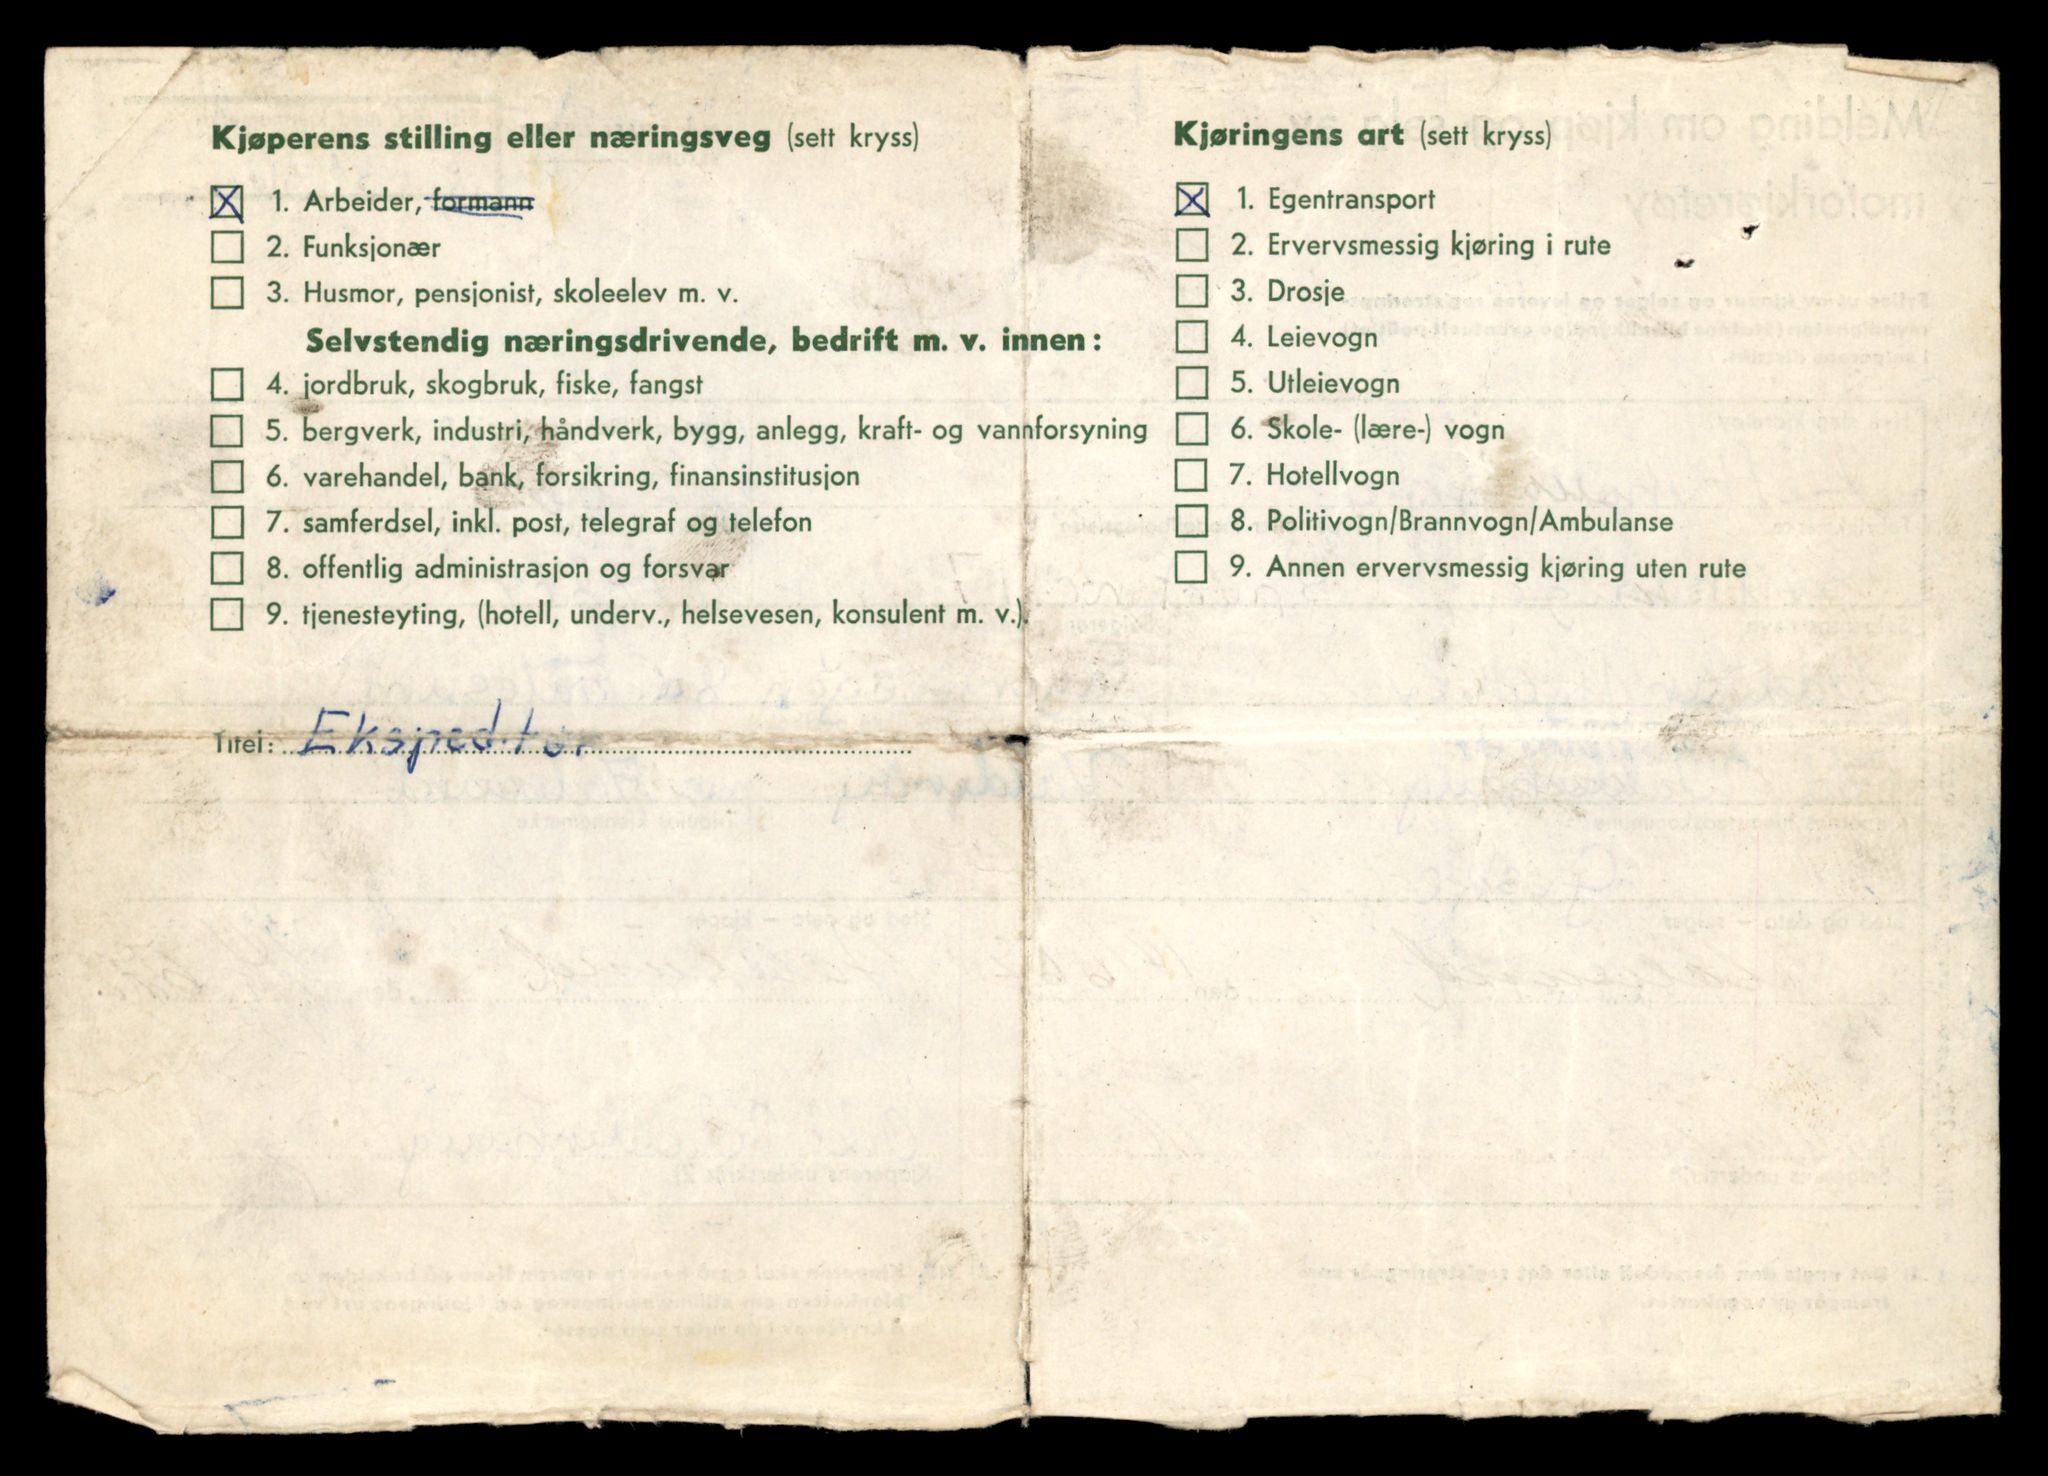 Kjøperens stilling eller næringsveg (sett kryss)
1. Arbeider, formann
2. Funksjonær
3. Husmor, pensjonist, skoleelev m. v.
Selvstendig næringsdrivende, bedrift m. v. innen:
4. jordbruk, skogbruk, fiske, fangst
5. bergverk, industri, håndverk, bygg, anlegg, kraft- og vannforsyning
6. varehandel, bank, forsikring, finansinstitusjon
7. samferdsel, inkl. post, telegraf og telefon
8. offentlig administrasjon og forsvar
9. tjenesteyting, (hotell, underv., helsevesen, konsulent m. v.).
Titel: Ekspeditør
Kjøringens art (sett kryss)
1. Egentransport
2. Ervervsmessig kjøring i rute
3. Drosje
4. Leievogn
5. Utleievogn
6. Skole- (lære-) vogn
7. Hotellvogn
8. Politivogn/Brannvogn/Ambulanse
9. Annen ervervsmessig kjøring uten rute